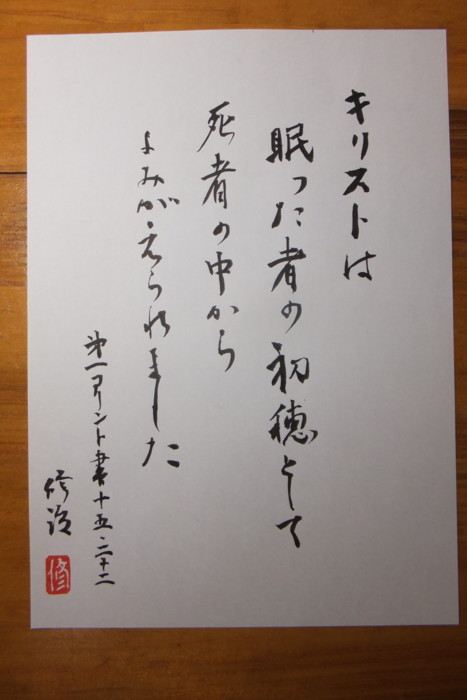 キリストは
眠った者の初穂として
死者の中から
よみがえられました
第一コリント書十五・二十二
修治
修